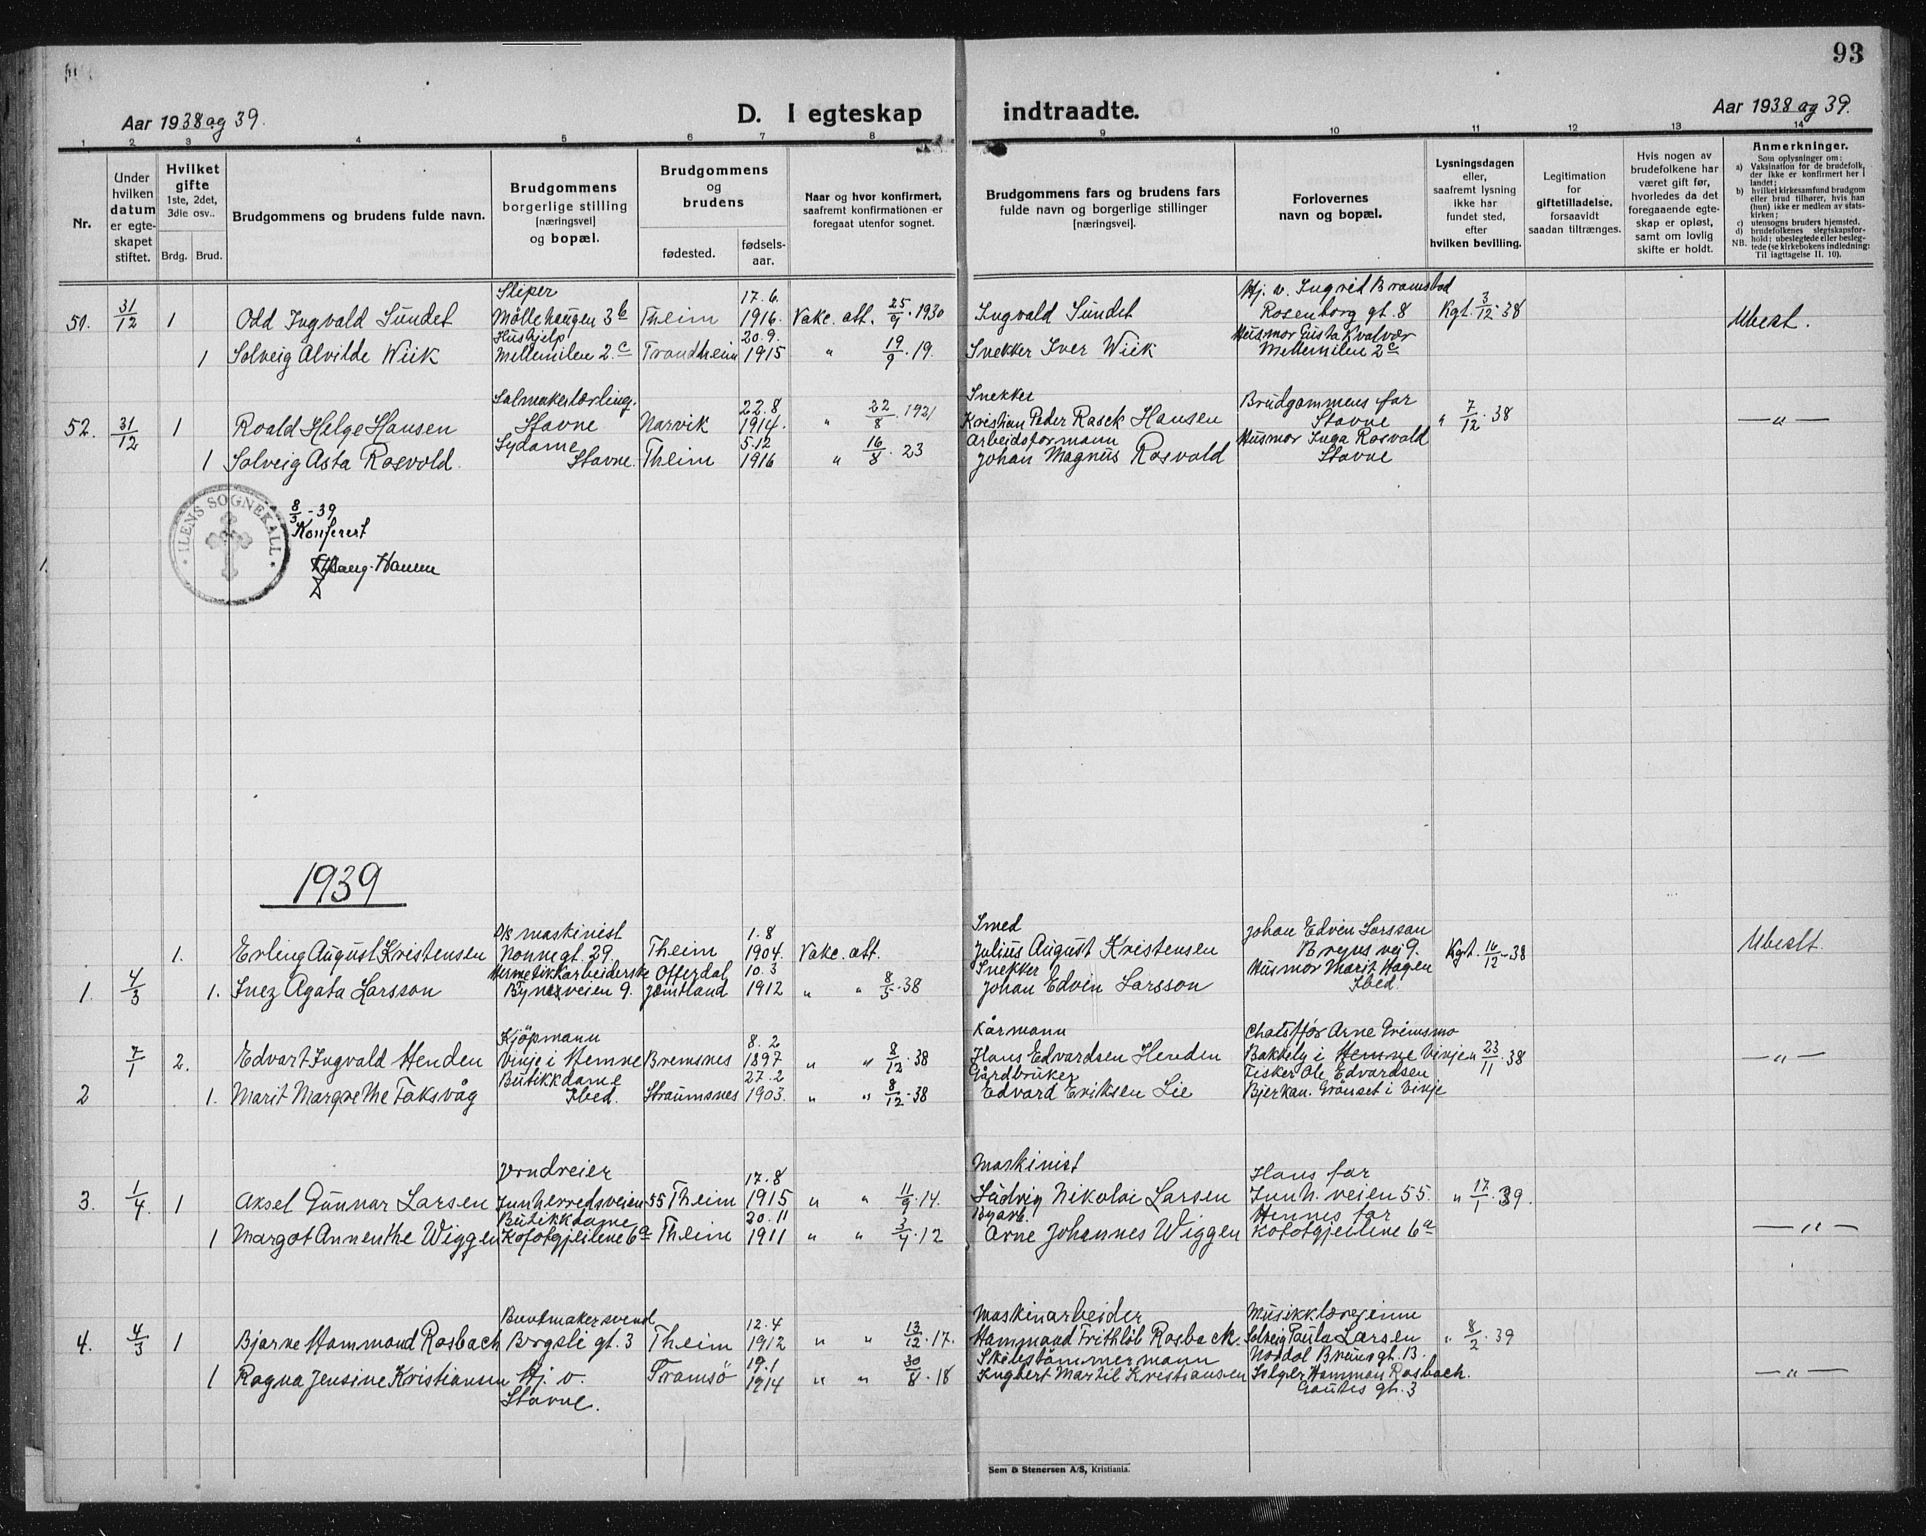 93
Aar 1938 og 39.
D. I egteskap indtraadte.
Aar 1938 og 39.
1 2 3 4 5 6 7 8 9 10 11 12 13 14
Nr.
Under hvilken datum er egteskapet stiftet.
Hvilket gifte 1ste, 2det, 3die osv..
Brdg. Brud.
Brudgommens og brudens fulde navn.
Brudgommens borgerlige stilling [næringsvei] og bopæl.
Brudgommens og brudens
fødested. fødselsaar.
Naar og hvor konfirmert, saafremt konfirmationen er foregaat utenfor sognet.
Brudgommens fars og brudens fars fulde navn og borgerlige stillinger [næringsvei].
Forlovernes navn og bopæl.
Lysningsdagen eller, saafremt lysning ikke har fundet sted, efter hvilken bevilling.
Legitimation for giftetilladelse, forsaavidt saadan tiltrænges.
Hvis nogen av brudefolkene har været gift før, hvorledes da det foregaaende egteskap er opløst, samt om lovlig skifte er holdt.
Anmerkninger.
Som oplysninger om:
a) Vaksination for de brudefolk, der ikke er konfirmert her i landet;
b) hvilket kirkesamfund brudgom eller brud tilhører, hvis han (hun) ikke er medlem av statskirken;
c) utensogns bruders hjemsted.
d) brudefolkenes slegtskapsforhold: ubeslegtede eller beslegtede (se kirkebokens indledning:
NB. Til iagttagelse II. 10).
Sliper 17.6. Hj. v. Ingrid Bramstad
51. 31/12 1 Odd Ingvald Sundet Möllehaugen 3b Theim 1916. Vakc. att. 25/9. 1930 Ingvald Sundet Rosenborg gt. 8 Kgt. 3/12. 38 Ubesl.
Hushjelp 20.9. Husmor Gusta Kvalvær
1 Solveig Alvilde Wiik Mellemilen 2c Trondheim 1915 " 19/9. 19. Snekker Iver Wiik Mellemilen 2c
Salmakerlærling. 22.8 Snekker Brudgommens far
52. 31/12 1 Roald Helge Hansen Stavne Narvik 1914. " 22/8. 1921 Kristian Peder Rasck Hansen Stavne " 7/12. 38 — " —
Sydame 5.12 Arbeidsformann Husmor Inga Rosvold
1 Solveig Asta Rosvold. Stavne. Theim 1916 " 16/8. 23 Johan Magnus Rosvold Stavne
ILENS SOGNEKALL
8/3 - 39
Konferert
1939
D/s maskinist 1.8 Smed Johan Edvin Larsson
1. Erling August Kristensen Nonnegt. 29 Theim 1904. Vakc. att. Julius August Kristensen Byns vei 9. Kgt. 16/12 - 38 Ubeslt.
Hermetikkarbeiderske Offerdal 10.3 Snekker Husmor Marit Hagen
1. 4/3 1. Inez Agata Larsson Bynesveien 9. Jämtland 1912 " " 8/5. 38 Johan Edvin Larsson Ibed.
Kjöpmann 8.2 Kårmann Chaufför Arne Grimsmo
7/1 2. Edvart Ingvald Henden Vinje i Hemne Bremsnes 1897 " " 8/12. 38 Hans Edvardsen Henden Bakkely i Hemne Vinje " 23/11. 38 — " —
Butikkdame 27.2 Gårdbruker Fisker Ole Edvardsen
2 1. Marit Margrethe Faksvåg Ibed. Straumsnes 1903. " " 8/12. 38 Edvard Eriksen Lie Bjerkan. Grönset i Vinje
17.8 Maskinist Hans far
3. 1/4. 1 Aksel Gunnar Larsen Innherredsveien 55 Theim 1915 " " 11/9. 14. Ludvig Nikolai Larsen Innh. veien 55. " 17/1. 39.
Butikkdame 20.11 Byarb. Hennes far
1 Margot Annenthe Wiggen Kofotgjeilene 6a Theim 1911 " " 3/4. 12 Arne Johannes Wiggen Kofotgjeilene 6a — " —
Buntmakersvend 12.4 Maskinarbeider Musikklærerinne
4. 4/3 1 Bjarne Hammond Rosbach Bergsli gt. 3 Theim 1912 " " 13/12. 17. Hammond Frithiof Rosback. Solveig Paula Larsen " 8/2. 39
19.1 Skibstömmermann Nordal Bruns gt. 13.
1 Ragna Jensine Kristiansen Hj. v. Tromsö 1914 " " 30/8. 18 Ingbert Martil Kristiansen Selger Hammon Rosbach. — " —
Stavne. Gautes gt. 3
Sem & Stenersen A/S, Kristiania.